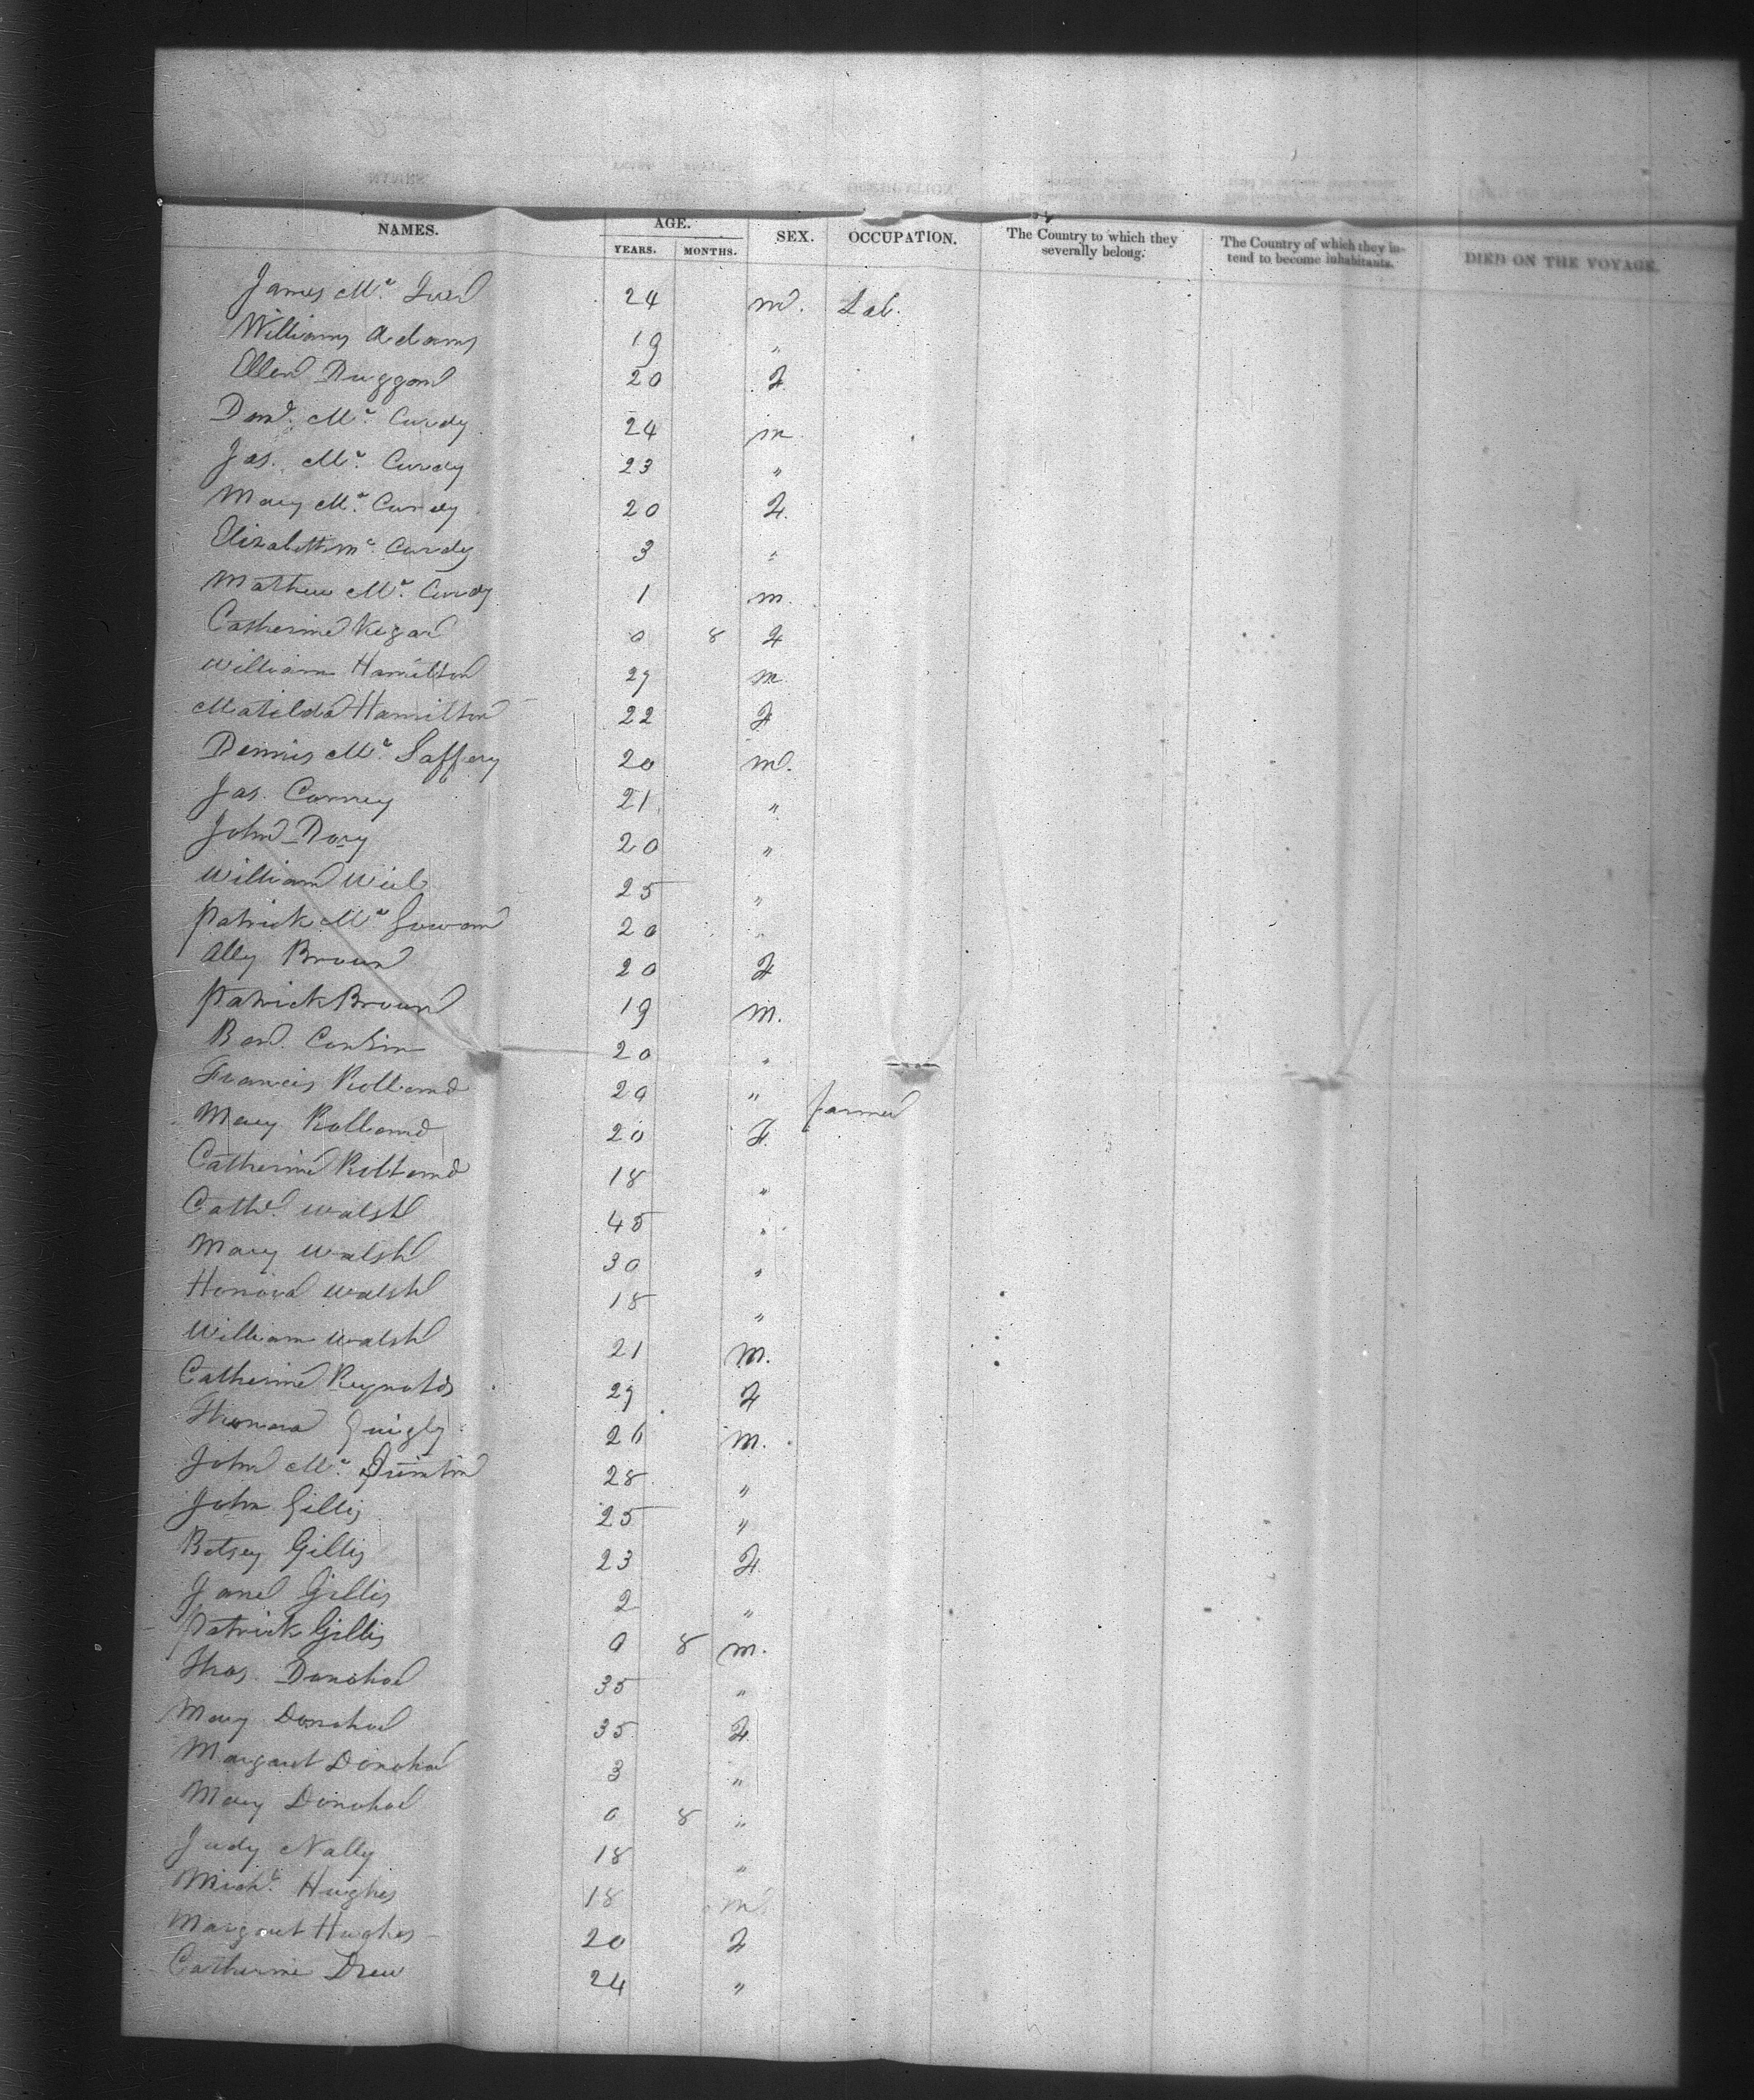 NAMES. AGE. SEX. OCCUPATION. The Country to which they severally belong. The Country of which they intend to become inhabitants. DIED ON THE VOYAGE.
YEARS. MONTHS.
James Mc 24 m. Lab.
William Adams 19 "
Ellen Duggan 20 F
Danl. Mc. Curdy 24 m
Jas. Mc. Curdy 23 "
Mary Mc. Curdy 20 F.
Elizabeth Mc. Curdy 3 "
Mathew Mc. Curdy 1 m.
Catherine Kegan 0 8 F
William Hamilton 27 m.
Matilda Hamilton 22 F
Dennis Mc. Laffery 20 m.
Jas. Conney 21 "
John Dory 20 "
William 25 "
Patrick Mc Gowan 20 "
Ally Brown 20 F
Patrick Brown 19 m.
Conlin 20 "
Francis Rolland 20 " farmer
Mary Rolland 20 F.
Catherine Rolland 18 "
Cathe. Walsh 45 "
Mary Walsh 30 "
Honora Walsh 18 "
William Walsh 21 m.
Catherine Reynolds 27 F
Quigly 26 m.
John Mc. 28 "
John Gillis 25 "
Betsey Gillis 23 F.
Jane Gillis 2 "
Patrick Gillis 0 8 m.
Thos. Donohoe 35 "
Mary Donohoe 35 F.
Margaret Donohoe 3 "
Mary Donohoe 0 8 "
Judy Nally 18 "
Michl. Hughes 18 m.
Margaret Hughes 20 F
Catherine Drew 24 "